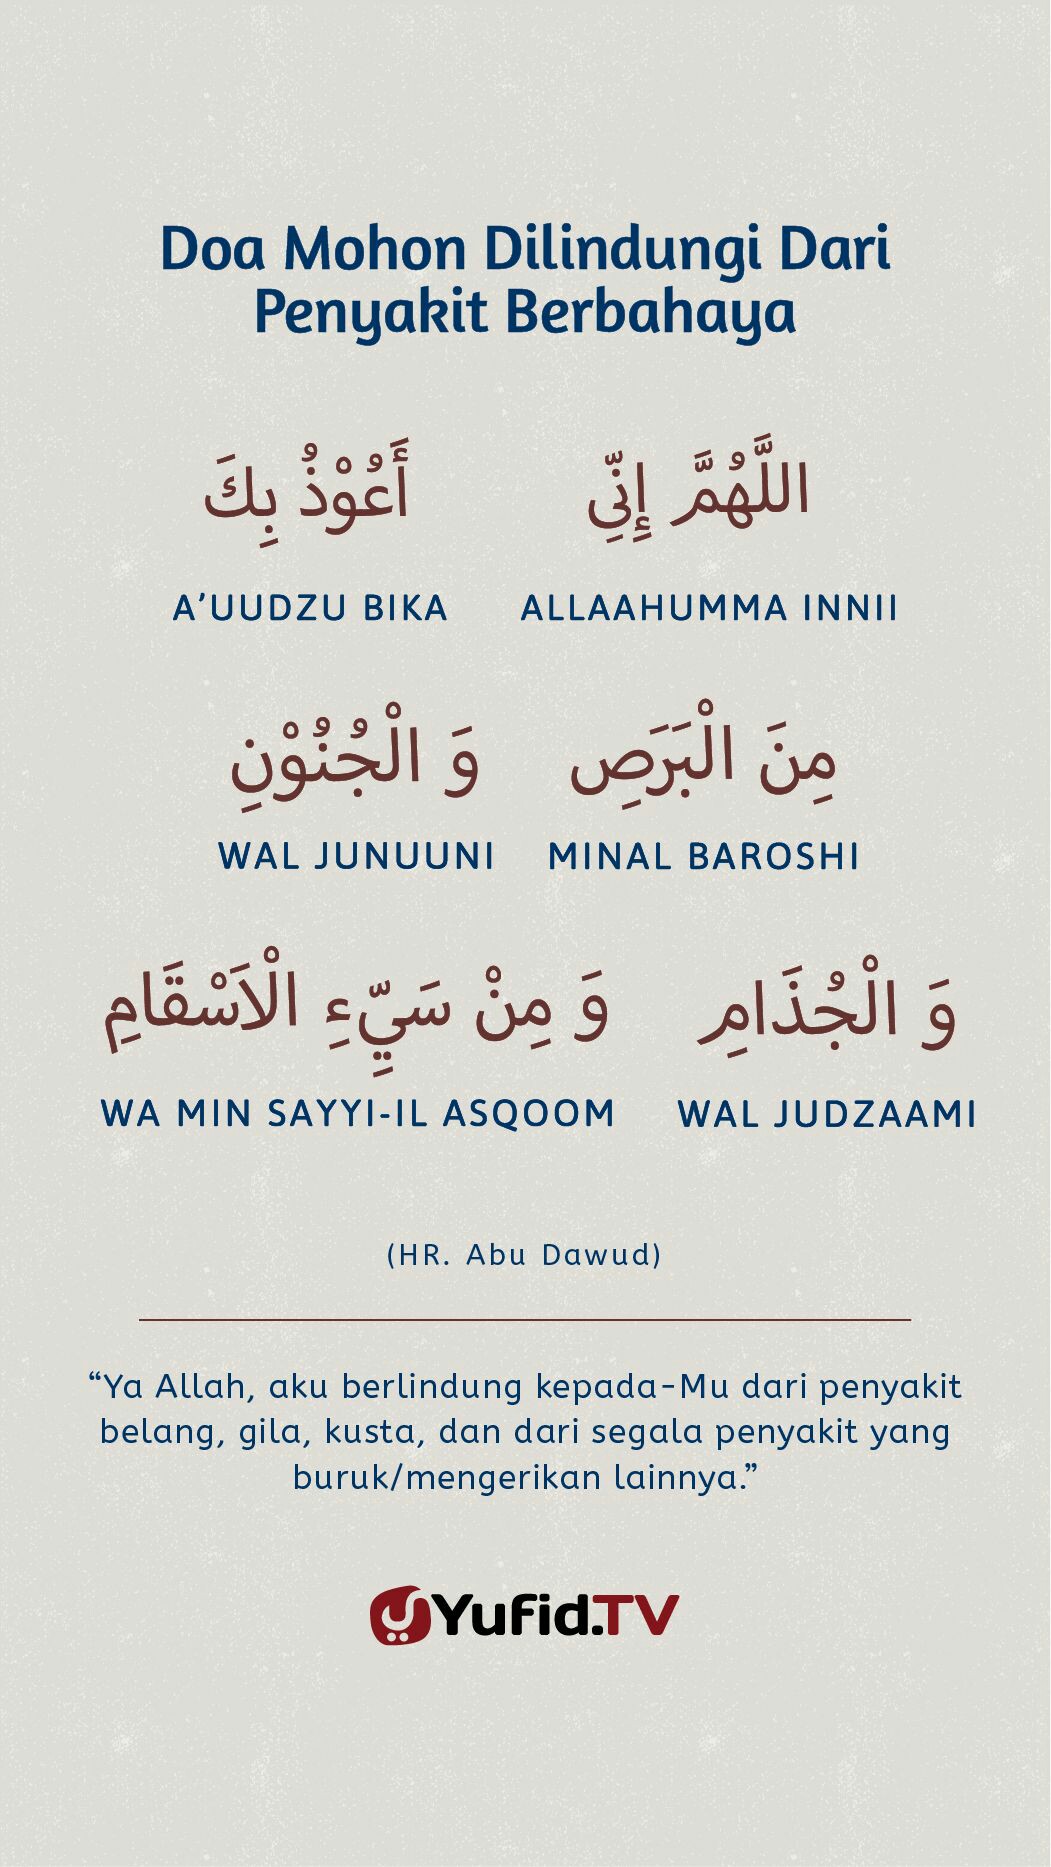 Doa Mohon Dilindungi Dari
Penyakit Berbahaya
اللَّهُمَّ إِنِّي أَعُوْذُ بِكَ
ALLAAHUMMA INNII A’UUDZU BIKA
مِنَ الْبَرَصِ وَ الْجُنُوْنِ
MINAL BAROSHI WAL JUNUUNI
وَ الْجُذَامِ وَ مِنْ سَيِّءِ الْاَسْقَامِ
WAL JUDZAAMI WA MIN SAYYI-IL ASQOOM
(HR. Abu Dawud)
“Ya Allah, aku berlindung kepada-Mu dari penyakit
belang, gila, kusta, dan dari segala penyakit yang
buruk/mengerikan lainnya.”
Yufid.TV